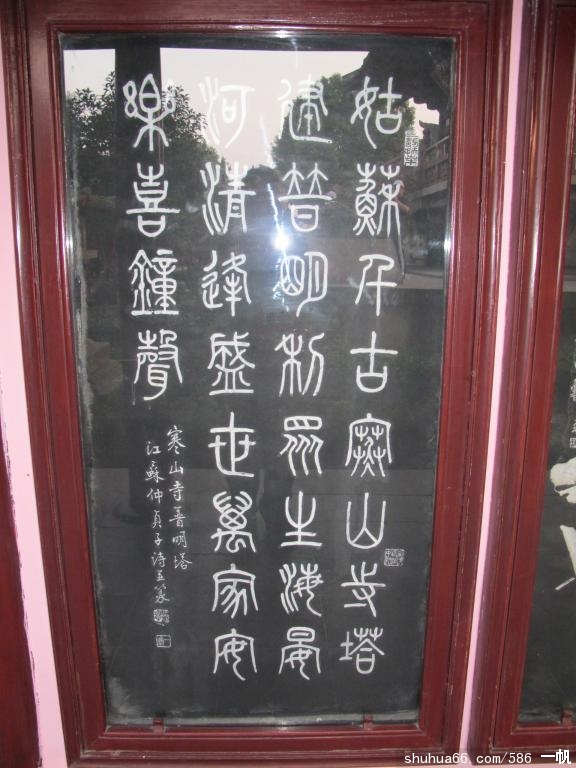 姑蘇千古寒山寺塔
建普明利眾生海晏
河清逢盛世萬家安
樂喜鐘聲
寒山寺普明塔
江蘇仲貞子詩並篆
shuhua66.com/586 一帆